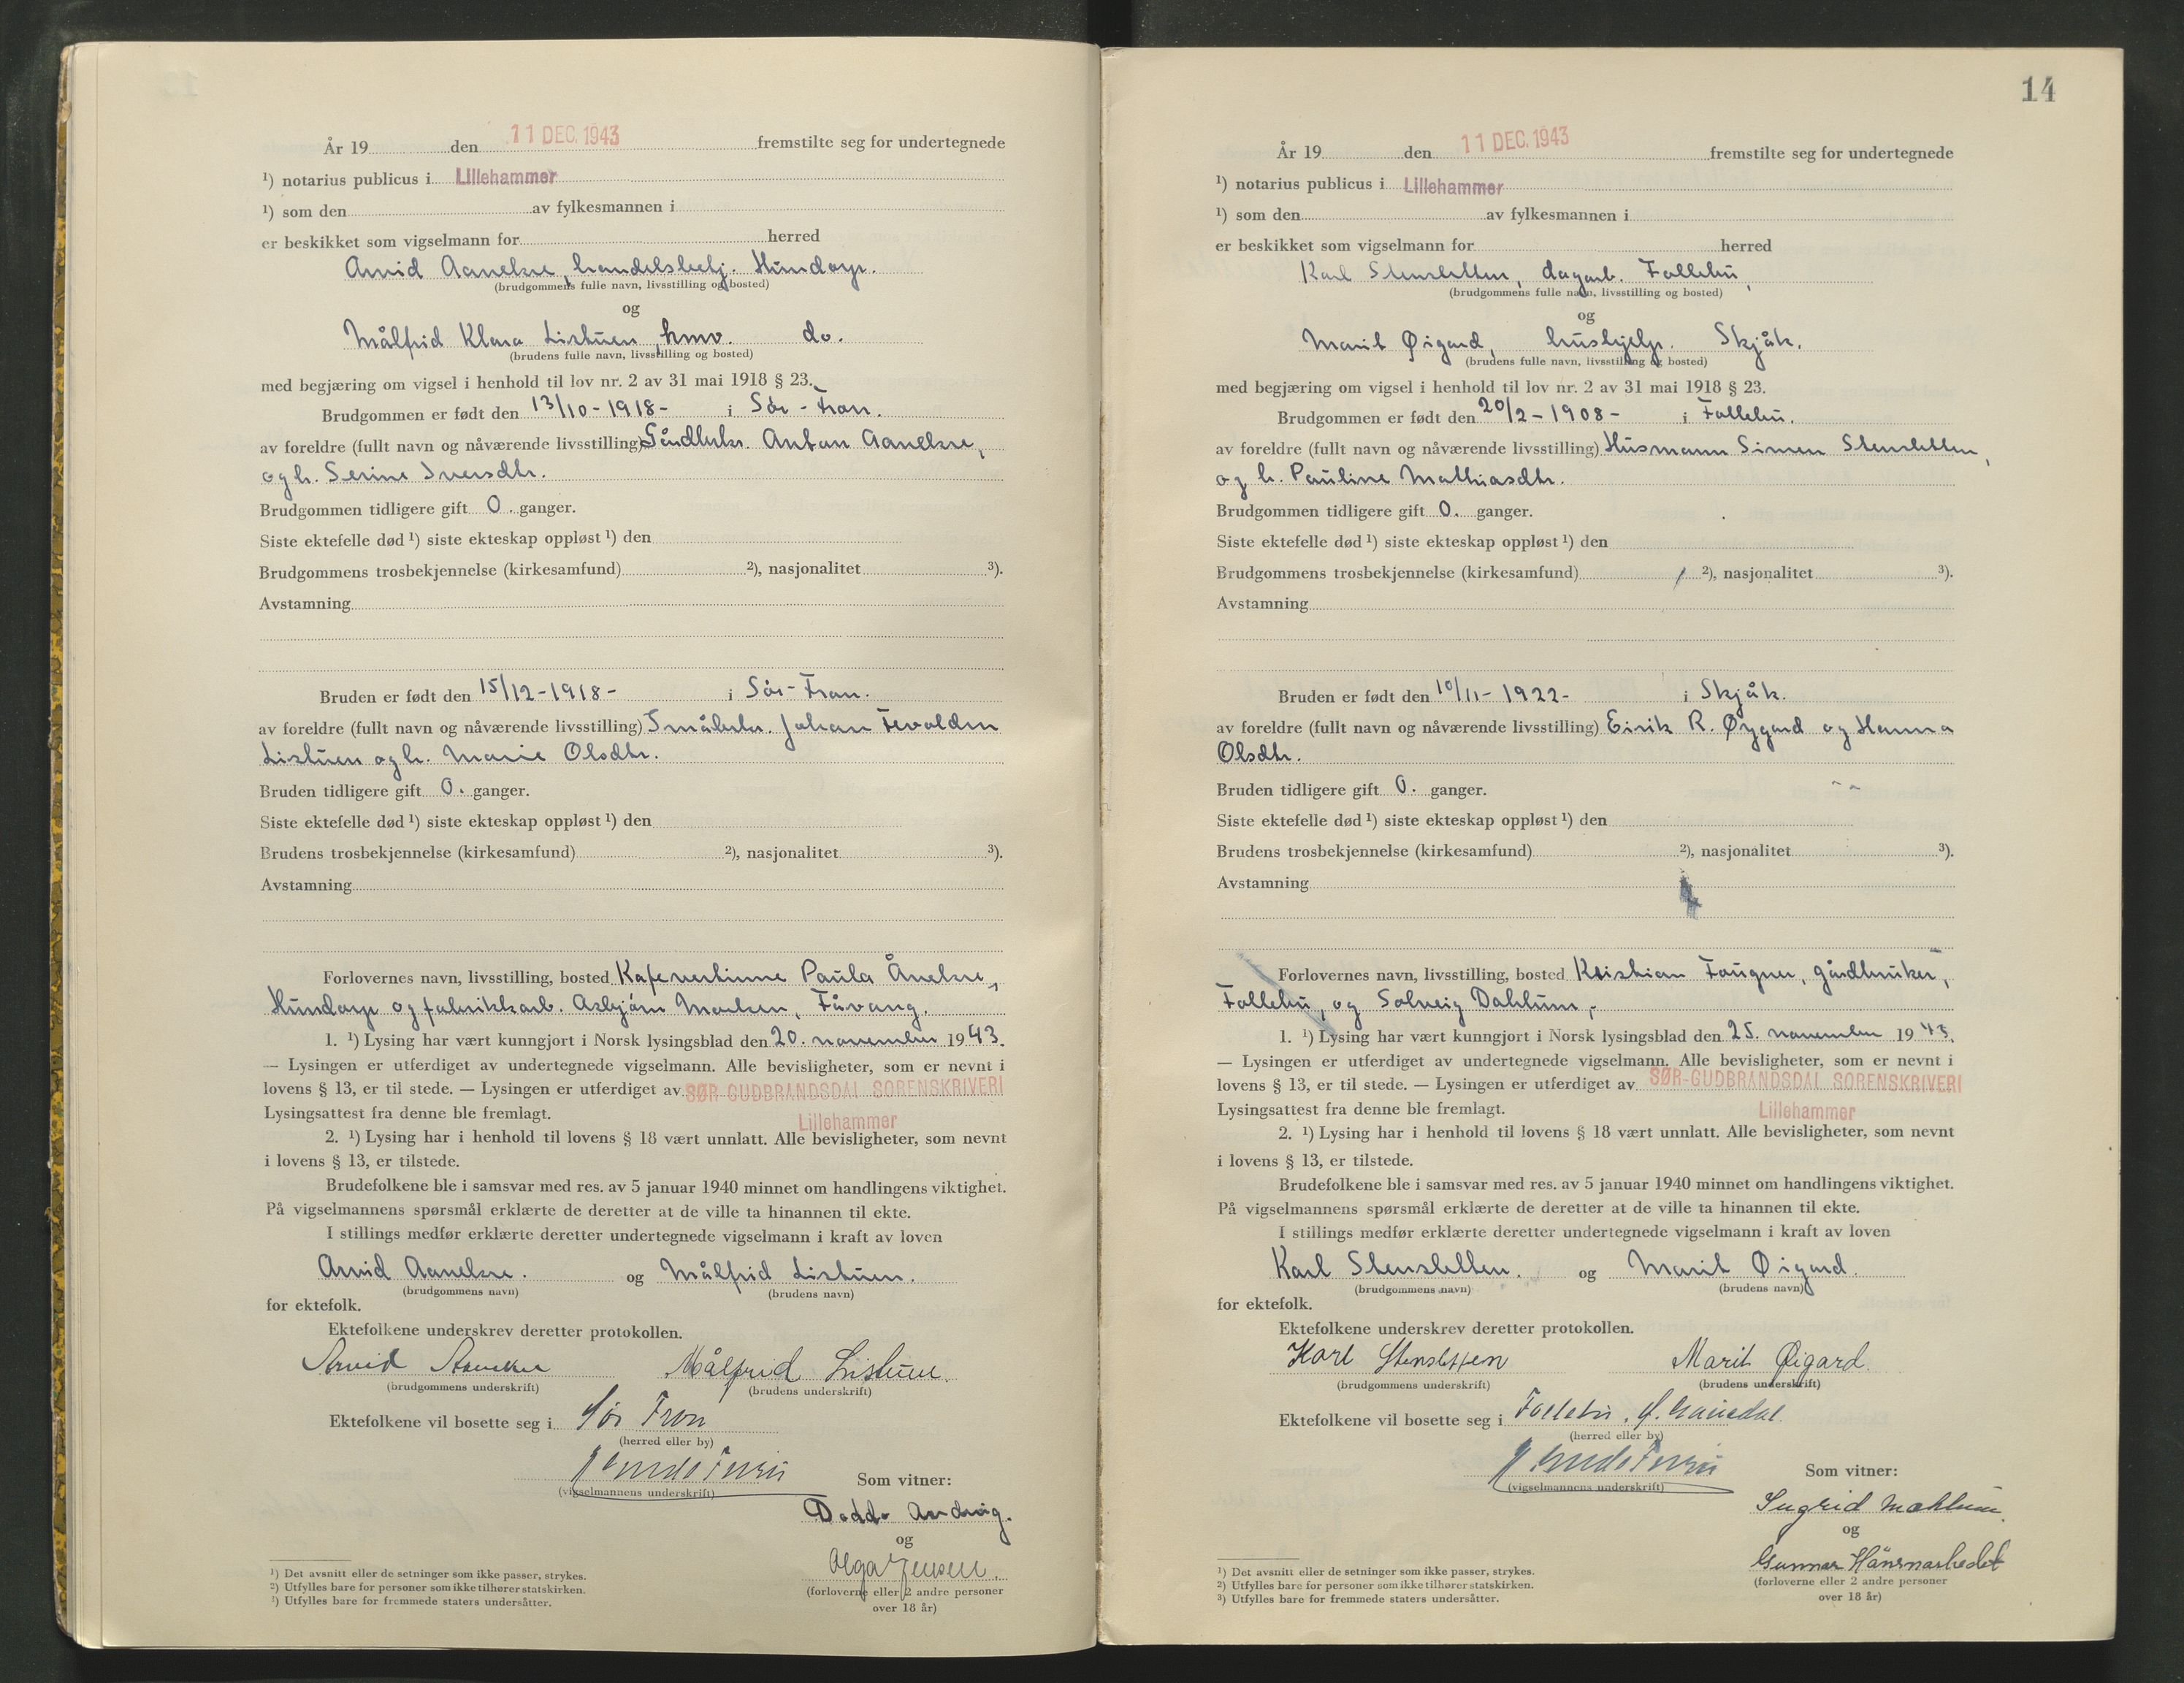 År 19 den 11 DEC. 1943 fremstilte seg for undertegnede
¹) notarius publicus i Lillehammer
¹) som den av fylkesmannen i
er beskikket som vigselmann for herred
Arvid Aanekre, handelsbetj. Hundorp.
(brudgommens fulle navn, livsstilling og bosted)
og
Målfrid Klara Listuen, hmv. do.
(brudens fulle navn, livsstilling og bosted)
med begjæring om vigsel i henhold til lov nr. 2 av 31 mai 1918 § 23.
Brudgommen er født den 13/10-1918- i Sör-Fron.
av foreldre (fullt navn og nåværende livsstilling) Gårdbrkr. Anton Aanekre,
og h. Serine Iversdtr.
Brudgommen tidligere gift 0. ganger.
Siste ektefelle død ¹) siste ekteskap oppløst ¹) den
Brudgommens trosbekjennelse (kirkesamfund) ²), nasjonalitet ³).
Avstamning
Bruden er født den 15/12-1918- i Sör-Fron.
av foreldre (fullt navn og nåværende livsstilling) Småbrkr. Johan Tevolden
Listuen og h. Marie Olsdtr.
Bruden tidligere gift 0. ganger.
Siste ektefelle død ¹) siste ekteskap oppløst ¹) den
Brudens trosbekjennelse (kirkesamfund) ²), nasjonalitet ³).
Avstamning
Forlovernes navn, livsstilling, bosted Kafevertinne Paula Ånekre,
Hundorp og fabrikkarb. Asbjörn Moelsen, Fåvang.
1. ¹) Lysing har vært kunngjort i Norsk lysingsblad den 20. november 1943.
— Lysingen er utferdiget av undertegnede vigselmann. Alle bevisligheter, som er nevnt i
lovens § 13, er til stede. — Lysingen er utferdiget av SØR-GUDBRANDSDAL SORENSKRIVERI
Lysingsattest fra denne ble fremlagt. Lillehammer
2. ¹) Lysing har i henhold til lovens § 18 vært unnlatt. Alle bevisligheter, som nevnt
i lovens § 13, er tilstede.
Brudefolkene ble i samsvar med res. av 5 januar 1940 minnet om handlingens viktighet.
På vigselmannens spørsmål erklærte de deretter at de ville ta hinannen til ekte.
I stillings medfør erklærte deretter undertegnede vigselmann i kraft av loven
Arvid Aanekre. og Målfrid Listuen.
(brudgommens navn) (brudens navn)
for ektefolk.
Ektefolkene underskrev deretter protokollen.
Arvid Aanekre Målfrid Listuen.
(brudgommens underskrift) (brudens underskrift)
Ektefolkene vil bosette seg i Sör Fron
(herred eller by)
Som vitner:
(vigselmannens underskrift)
Doddo Andvig.
og
Olga Jensen.
(forloverne eller 2 andre personer
over 18 år)
¹) Det avsnitt eller de setninger som ikke passer, strykes.
²) Utfylles bare for personer som ikke tilhører statskirken.
³) Utfylles bare for fremmede staters undersåtter.
14
År 19 den 11 DEC. 1943 fremstilte seg for undertegnede
¹) notarius publicus i Lillehammer
¹) som den av fylkesmannen i
er beskikket som vigselmann for herred
Karl Stensletten, dagarb. Follebu,
(brudgommens fulle navn, livsstilling og bosted)
og
Marit Øigard, hushjelp. Skjåk.
(brudens fulle navn, livsstilling og bosted)
med begjæring om vigsel i henhold til lov nr. 2 av 31 mai 1918 § 23.
Brudgommen er født den 20/2-1908- i Follebu.
av foreldre (fullt navn og nåværende livsstilling) Husmann Simen Stensletten,
og h. Pauline Mathiasdtr.
Brudgommen tidligere gift 0. ganger.
Siste ektefelle død ¹) siste ekteskap oppløst ¹) den
Brudgommens trosbekjennelse (kirkesamfund) ²), nasjonalitet ³).
Avstamning
Bruden er født den 10/11-1922- i Skjåk.
av foreldre (fullt navn og nåværende livsstilling) Eirik R. Øygard og Hanna
Olsdtr.
Bruden tidligere gift 0. ganger.
Siste ektefelle død ¹) siste ekteskap oppløst ¹) den
Brudens trosbekjennelse (kirkesamfund) ²), nasjonalitet ³).
Avstamning
Forlovernes navn, livsstilling, bosted Kristian Faugner, gårdbruker,
Follebu, og Solveig Dahlum,-
1. ¹) Lysing har vært kunngjort i Norsk lysingsblad den 25. november 1943.
— Lysingen er utferdiget av undertegnede vigselmann. Alle bevisligheter, som er nevnt i
lovens § 13, er til stede. — Lysingen er utferdiget av SØR-GUDBRANDSDAL SORENSKRIVERI
Lysingsattest fra denne ble fremlagt. Lillehammer
2. ¹) Lysing har i henhold til lovens § 18 vært unnlatt. Alle bevisligheter, som nevnt
i lovens § 13, er tilstede.
Brudefolkene ble i samsvar med res. av 5 januar 1940 minnet om handlingens viktighet.
På vigselmannens spørsmål erklærte de deretter at de ville ta hinannen til ekte.
I stillings medfør erklærte deretter undertegnede vigselmann i kraft av loven
Karl Stensletten. og Marit Øigard.
(brudgommens navn) (brudens navn)
for ektefolk.
Ektefolkene underskrev deretter protokollen.
Karl Stensletten Marit Øigard.
(brudgommens underskrift) (brudens underskrift)
Ektefolkene vil bosette seg i Follebu, Ø. Gausdal
(herred eller by)
Som vitner:
(vigselmannens underskrift)
Ingrid Mæhlum.
og
Gunnar
(forloverne eller 2 andre personer
over 18 år)
¹) Det avsnitt eller de setninger som ikke passer, strykes.
²) Utfylles bare for personer som ikke tilhører statskirken.
³) Utfylles bare for fremmede staters undersåtter.